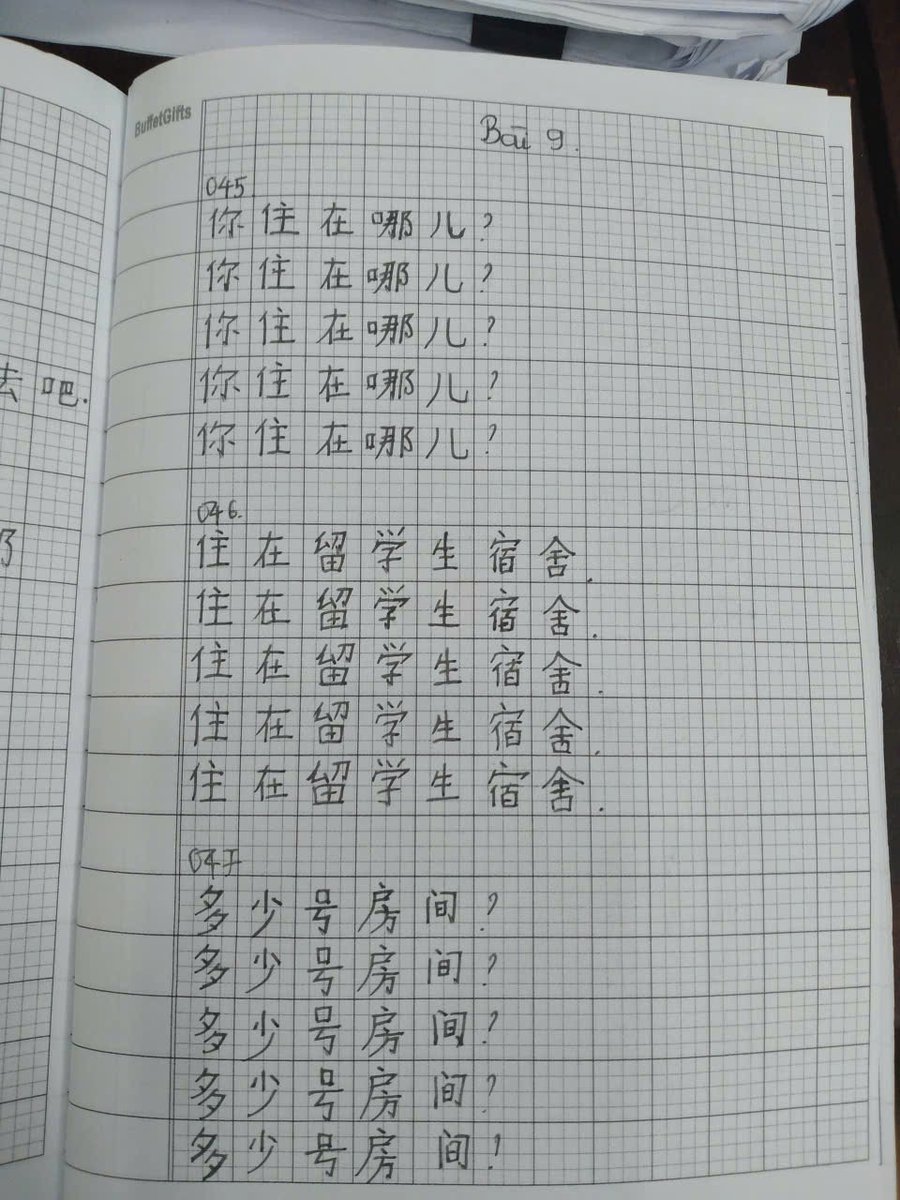 BuffetGifts
去吧.
Bài 9.
045
你住在哪儿?
你住在哪儿?
你住在哪儿?
你住在哪儿?
你住在哪儿?
046.
住在留学生宿舍.
住在留学生宿舍.
住在留学生宿舍.
住在留学生宿舍.
住在留学生宿舍.
047
多少号房间?
多少号房间?
多少号房间?
多少号房间?
多少号房间?